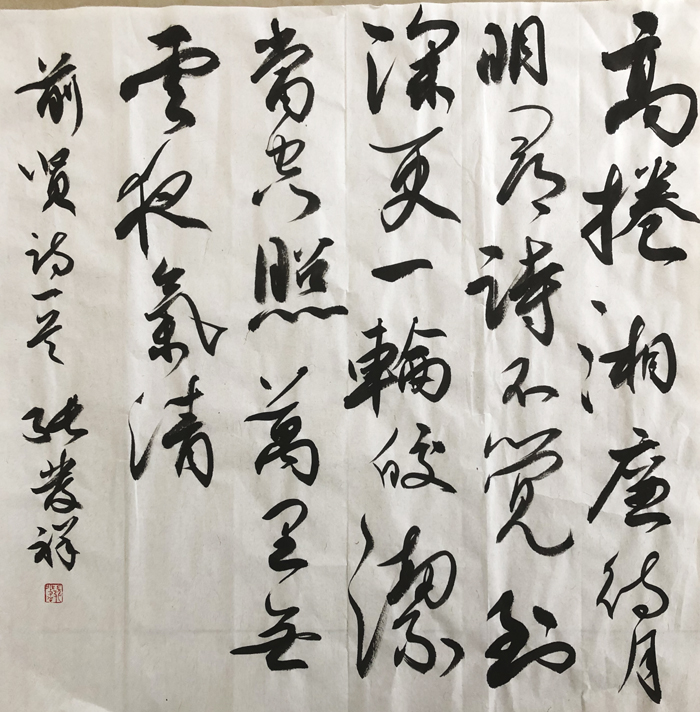 高捲湘廉待月
明尋詩不覺到
深更一輪皎潔
當空照萬里無
雲夜氣清
前贤诗一首 张發祥